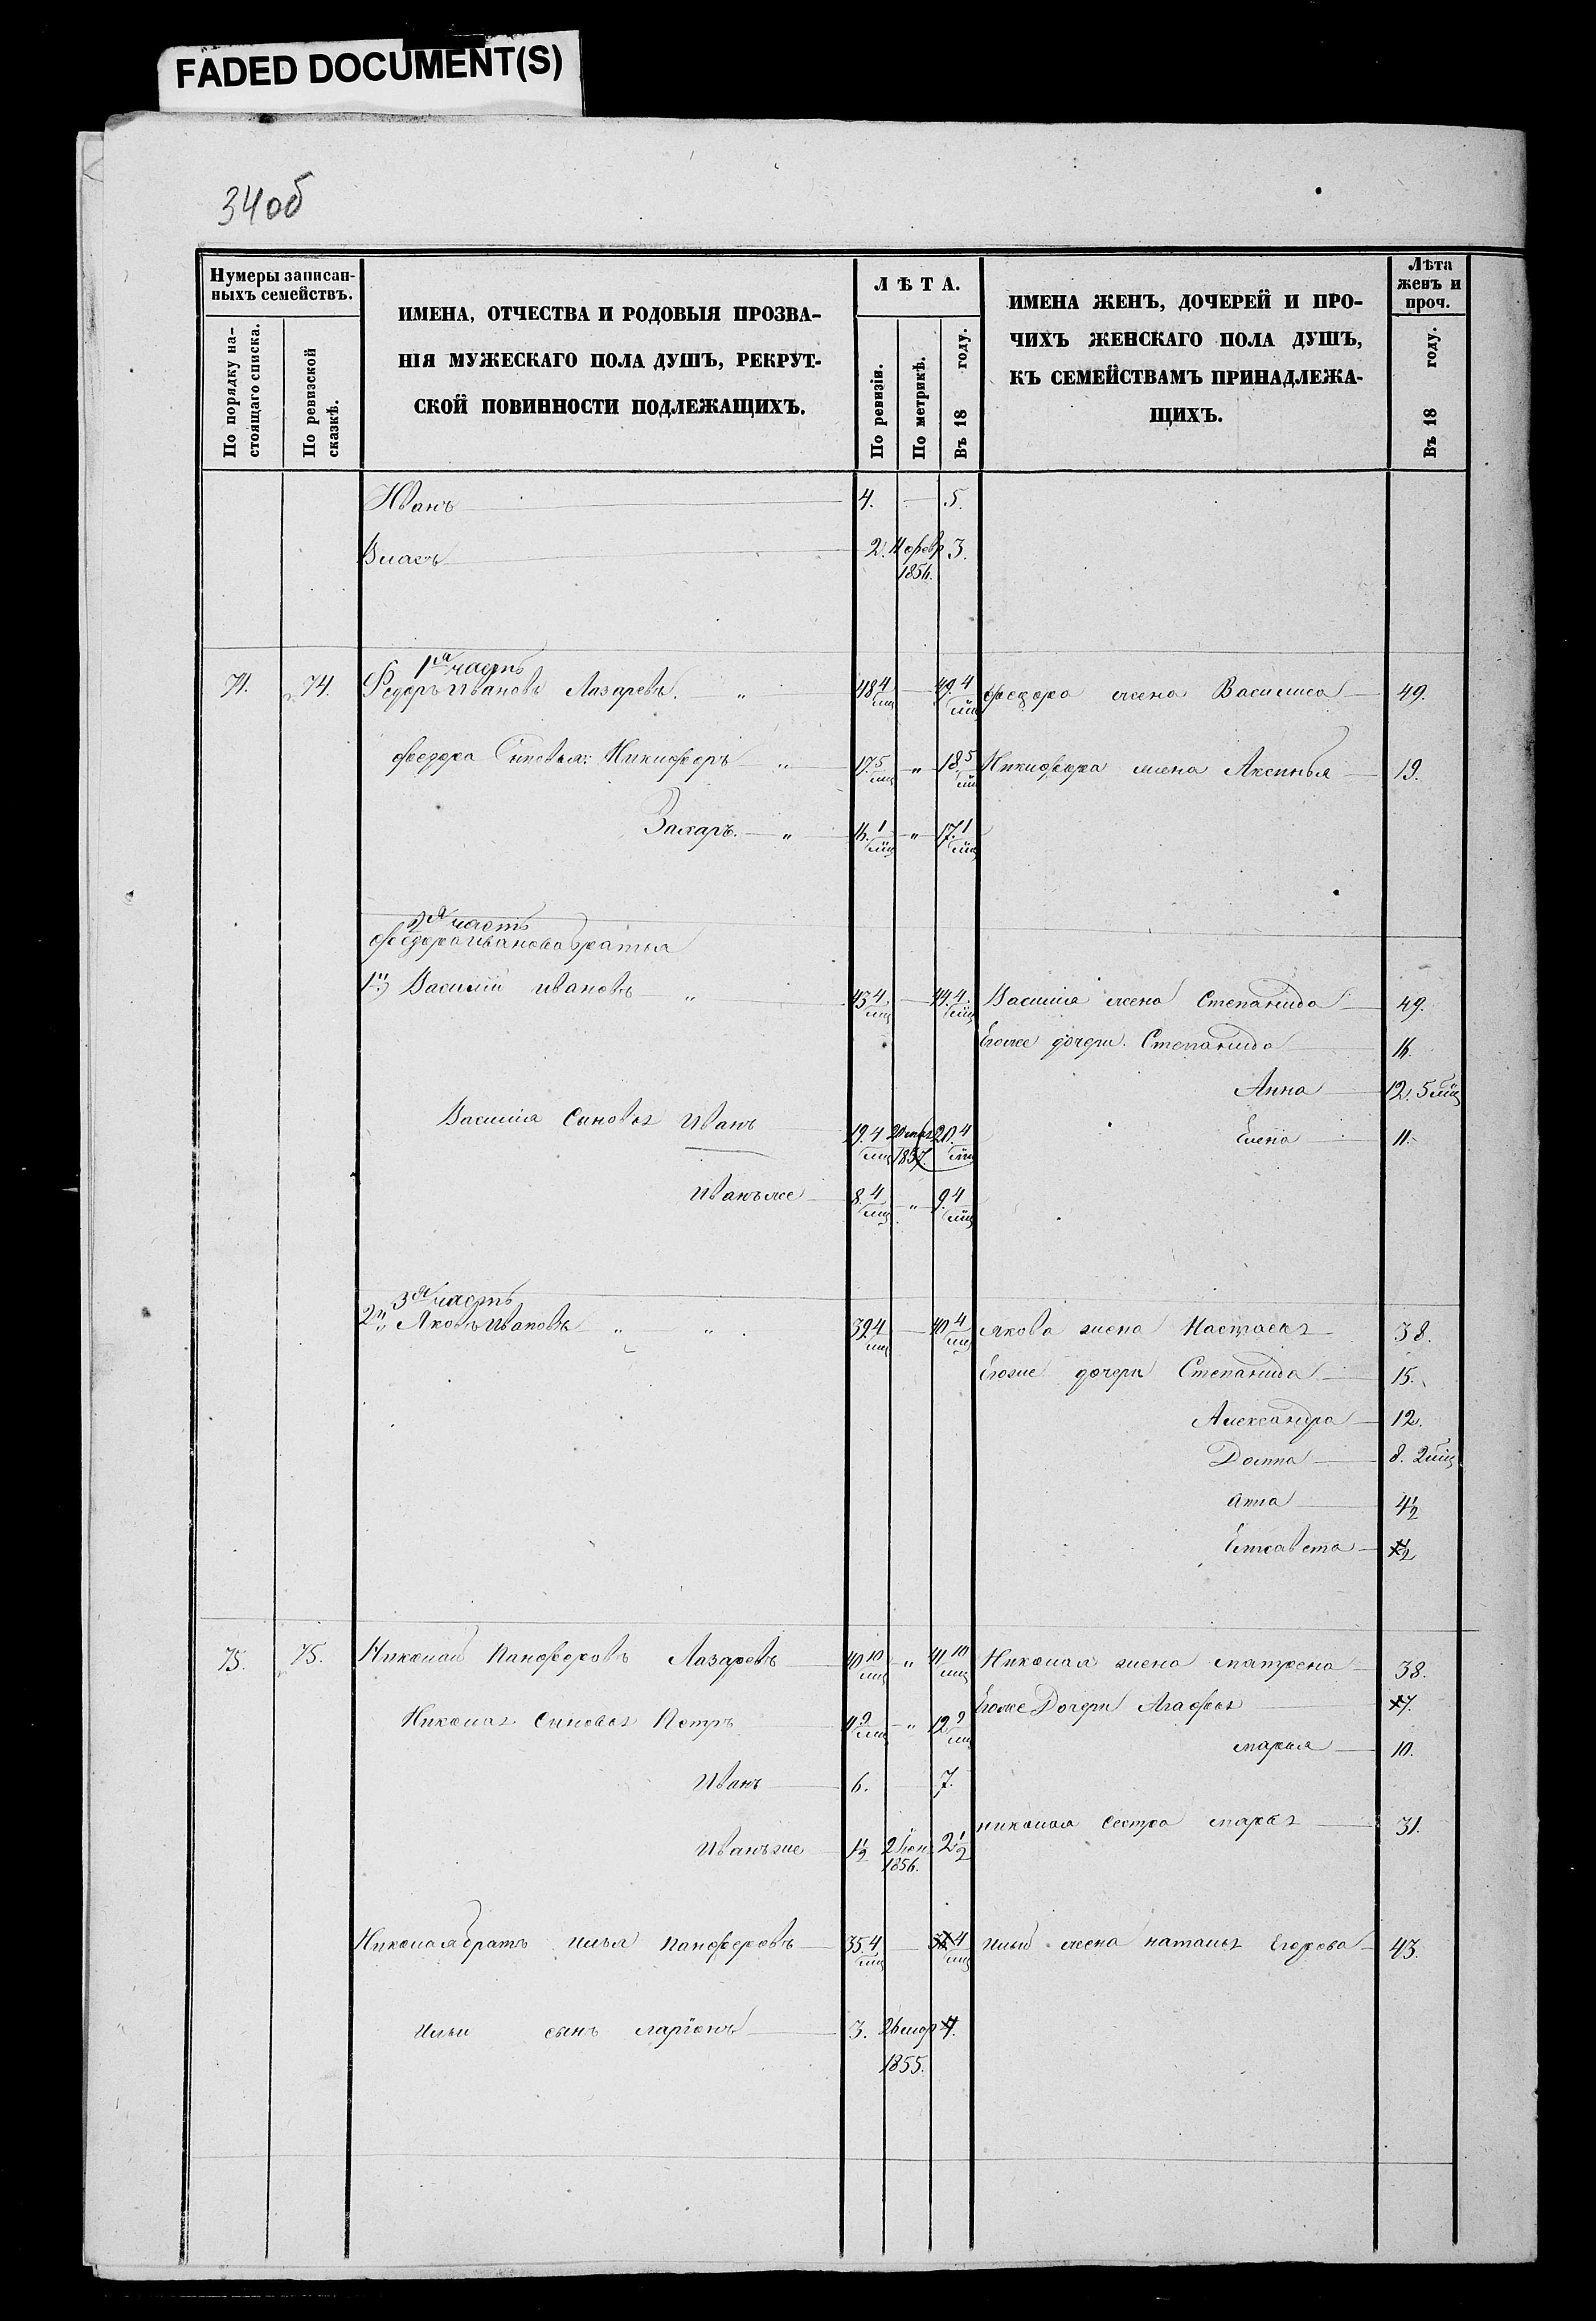 FADED DOCUMENT(S)
34об
Нумеры записан-
ныхъ семействъ.
По порядку на-
стоящаго списка.
По ревизской
сказкѣ.
ИМЕНА, ОТЧЕСТВА И РОДОВЫЯ ПРОЗВА-
НІЯ МУЖЕСКАГО ПОЛА ДУШЪ, РЕКРУТ-
СКОЙ ПОВИННОСТИ ПОДЛЕЖАЩИХЪ.
ЛѢТА.
По ревизіи.
По метрикѣ.
Въ 18 году.
ИМЕНА ЖЕНЪ, ДОЧЕРЕЙ И ПРО-
ЧИХЪ ЖЕНСКАГО ПОЛА ДУШЪ,
КЪ СЕМЕЙСТВАМЪ ПРИНАДЛЕЖА-
ЩИХЪ.
Лѣта
женъ и
проч.
Въ 18 году.
Иванъ 4. — 5.
Власъ 2. 11 февр 3.
1856.
1я часть
74. 74. Федоръ Ивановъ Лазаревъ. " 48 4/мц — 49. 4/мц Федора жена Василиса 49.
Федора Сыновья: Никифоръ " 17. 5/мц " 18 5/мц Никифора жена Аксинья 19.
Захаръ. " 16. 1/мц " 17. 1/мц
2я часть
Федора Иванова братья
1й) Василій Ивановъ " 43 4/мц — 44. 4/мц Василія жена Степанида 49.
Егоже дочери. Степанида 16.
Анна 12. 5 мц
Василія Сыновья Иванъ 19. 4/мц 20. 4/мц Елена 11.
1837.
Иванъ же 8. 4/мц " 9. 4/мц
3я часть
2й Яковъ Ивановъ " " 39 4/мц — 40 4/мц Якова жена Настасья 38.
Егоже дочери Степанида 15.
Александра 12.
Домна 8. 2 мц
Анна 4 1/2
Елисавета 1/2
75. 75. Николай Панферовъ Лазаревъ 40 10/мц " 41 10/мц Николая жена Матрена 38.
Егоже Дочери Агафья 17.
Николая Сыновья Петръ 11 9/мц " 12 9/мц
Марья 10.
Иванъ 6. — 7.
Николая сестра Марья 31.
Иванъ же 1 1/2 2 Іюн 2 1/2
1856.
Николая братъ Илья Панферовъ 35. 4/мц — 36. 4/мц Ильи жена Наталья Егорова 43.
Ильи сынъ Ларіонъ 3. 26 мар 4.
1855.